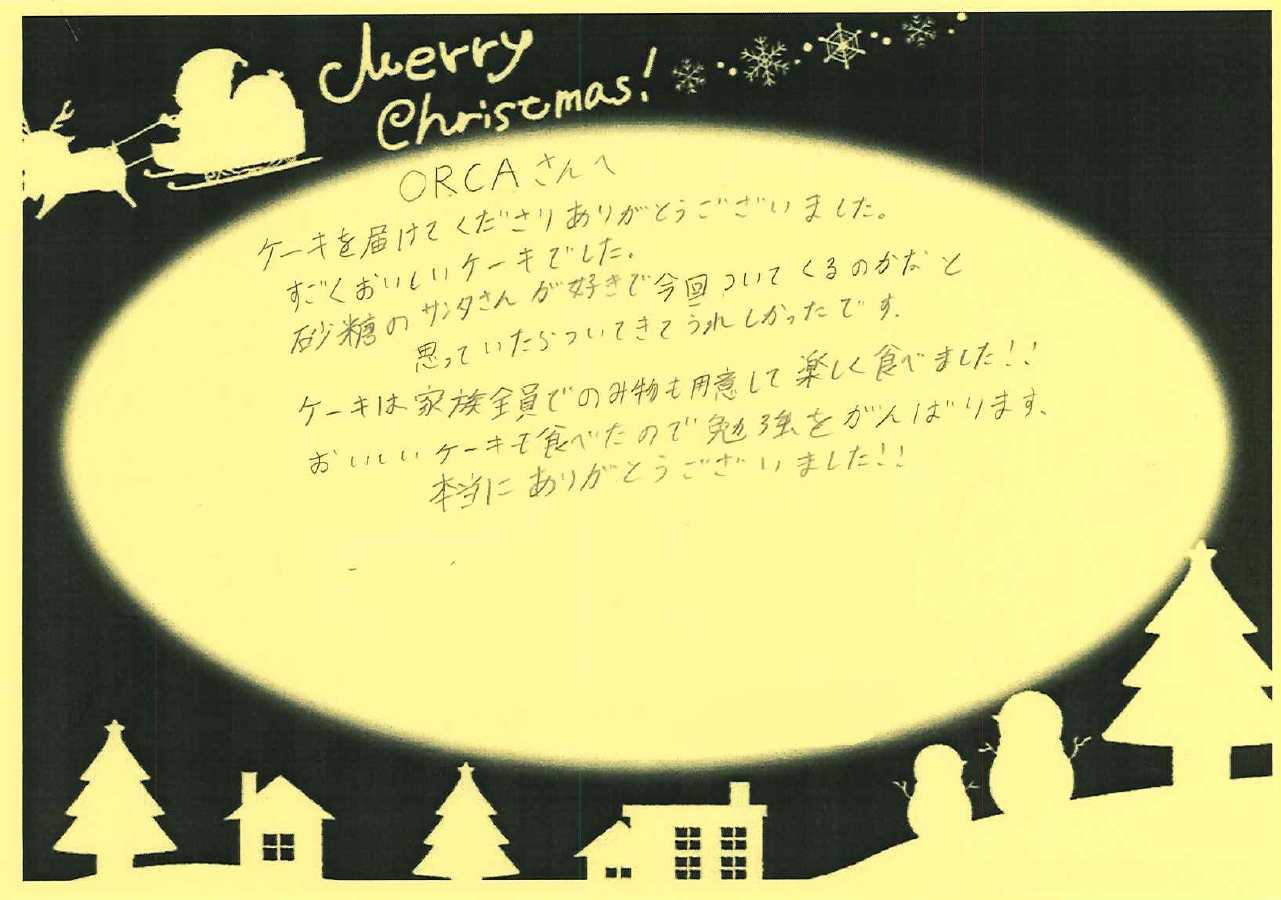 Merry
Christmas!
ORCAさんへ
ケーキを届けてくださりありがとうございました。
すごくおいしいケーキでした。
砂糖のサンタさんが好きで今回ついてくるのかなと
思っていたらついてきてうれしかったです。
ケーキは家族全員でのみ物も用意して楽しく食べました!!
おいしいケーキも食べたので勉強をがんばります、
本当にありがとうございました!!